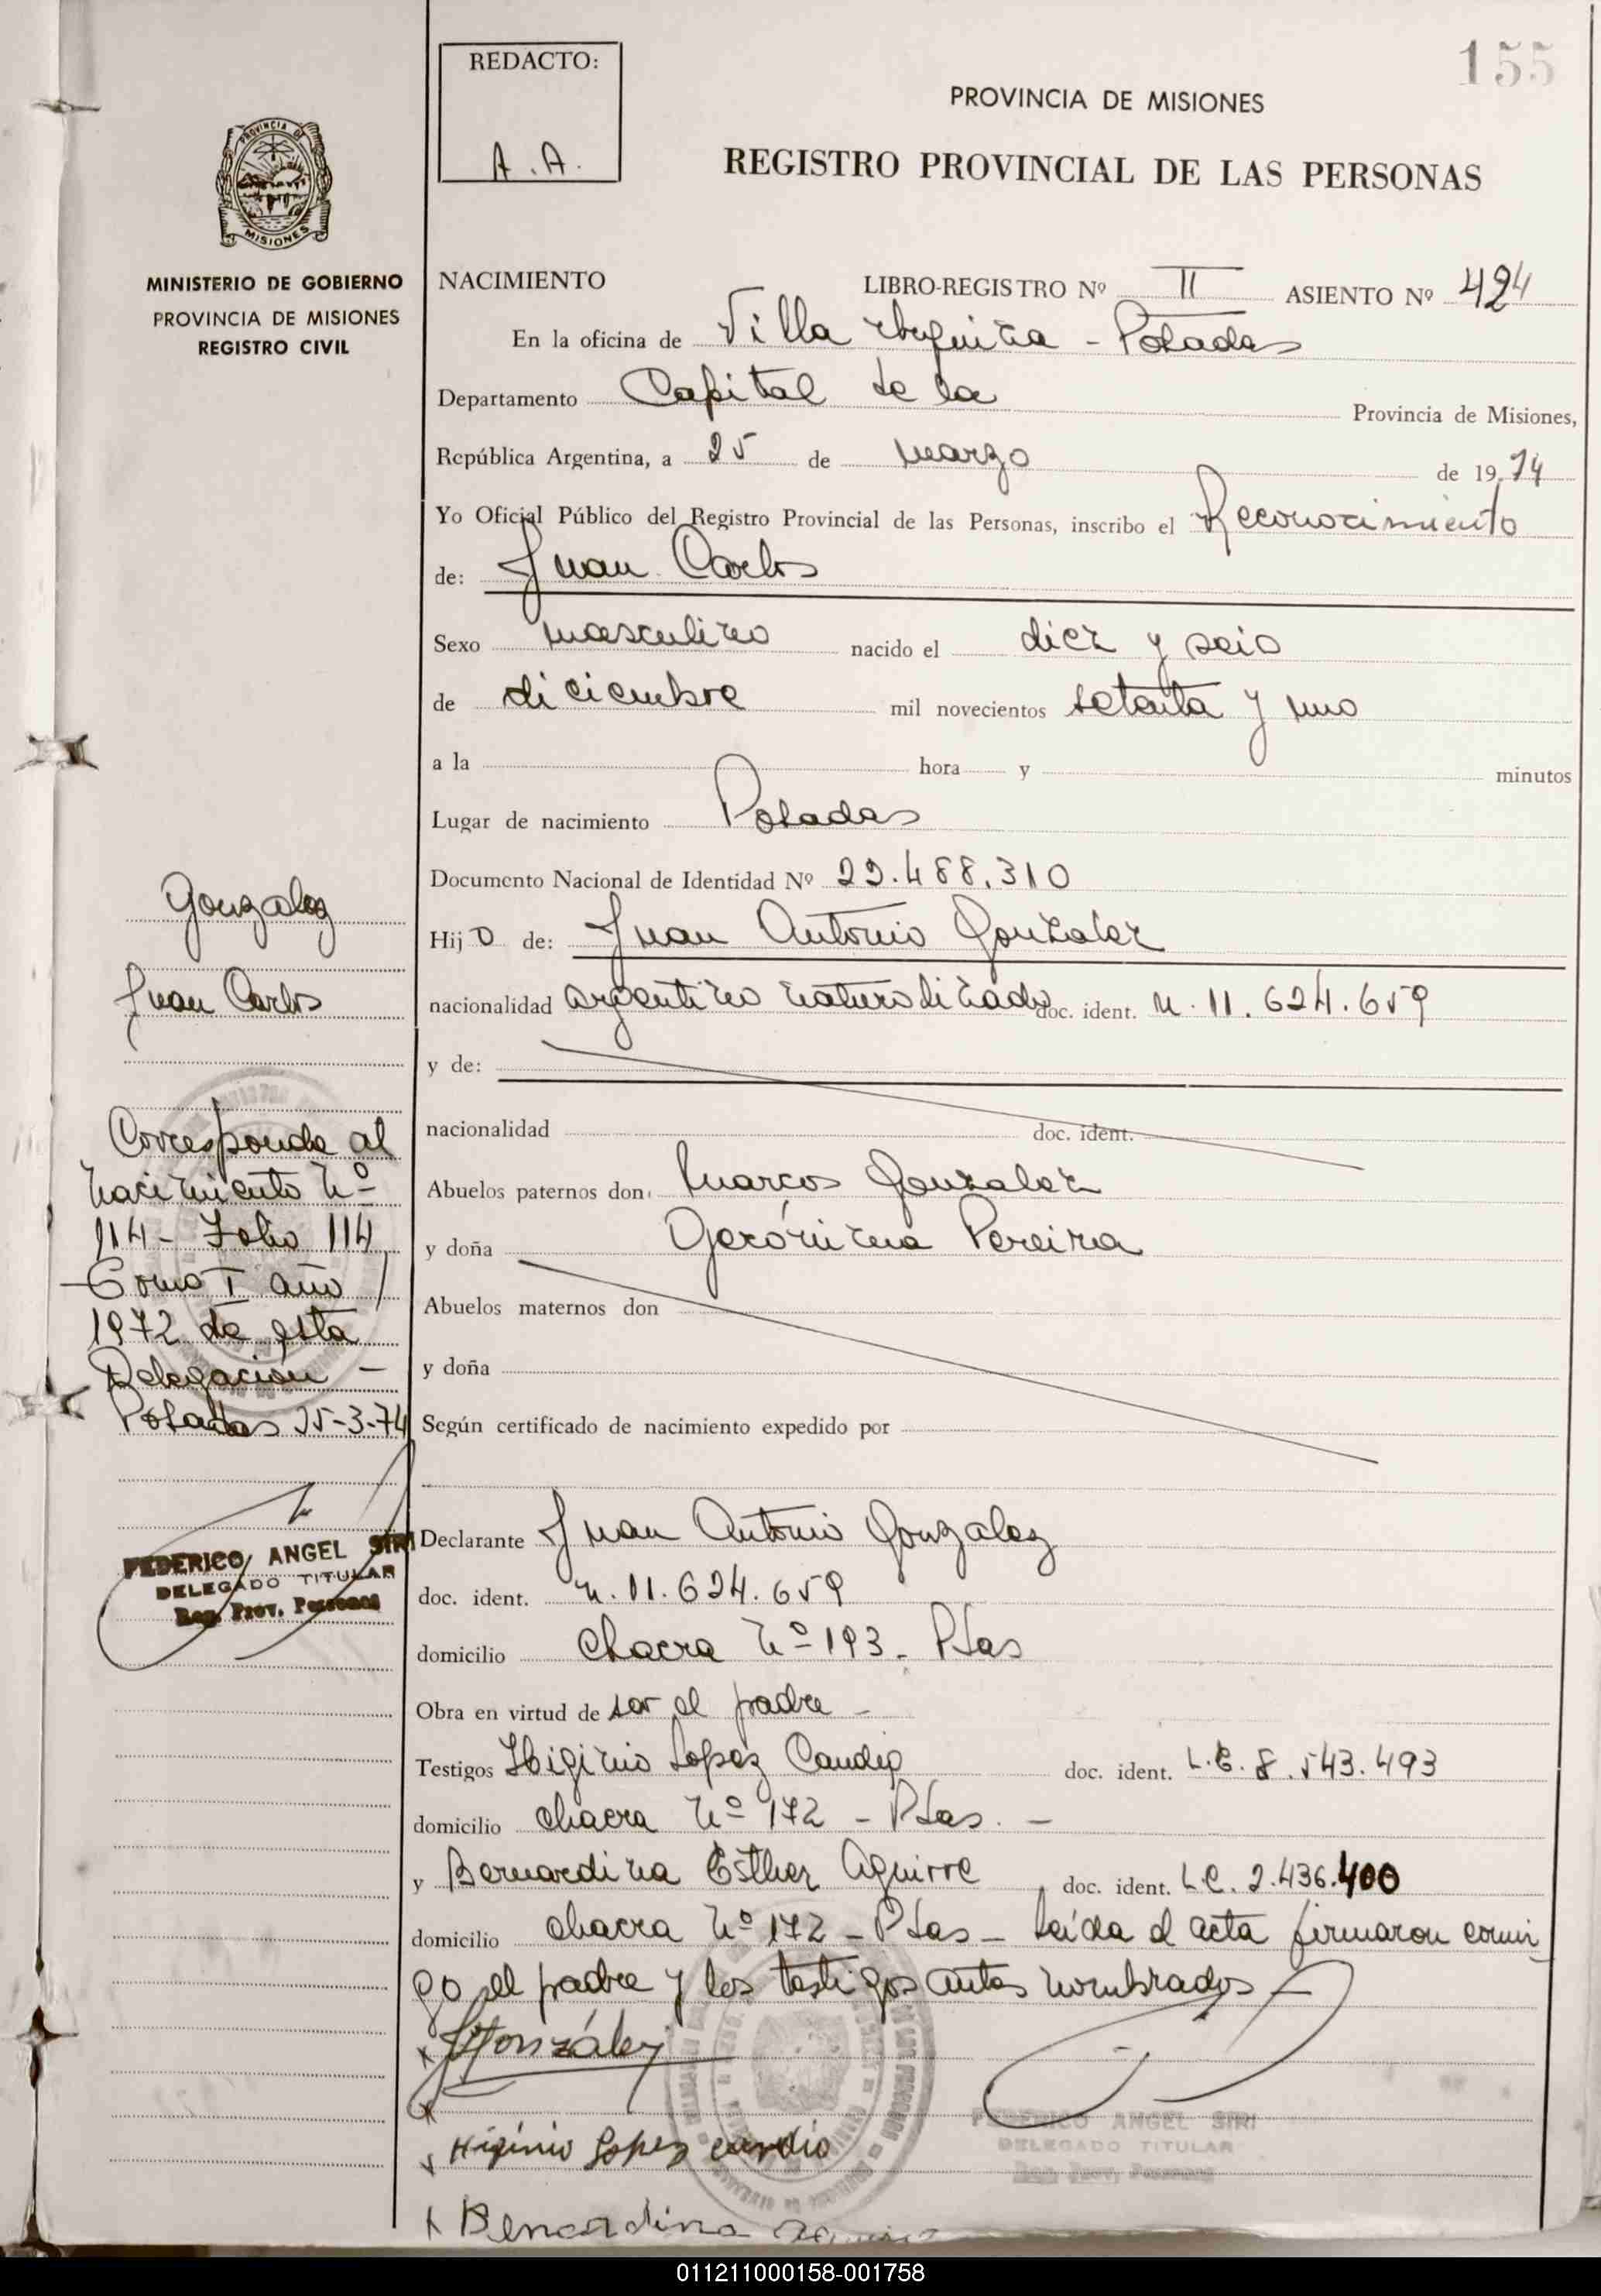 155
REDACTO:
A. A.
PROVINCIA DE MISIONES
REGISTRO PROVINCIAL DE LAS PERSONAS
PROVINCIA DE
MISIONES
MINISTERIO DE GOBIERNO
PROVINCIA DE MISIONES
REGISTRO CIVIL
NACIMIENTO LIBRO-REGISTRO Nº II ASIENTO Nº 424
En la oficina de Villa Urquiza - Posadas
Departamento Capital de la Provincia de Misiones,
República Argentina, a 25 de marzo de 1974
Yo Oficial Público del Registro Provincial de las Personas, inscribo el Reconocimiento
de: Juan Carlos
Sexo masculino nacido el diez y seis
de diciembre mil novecientos setenta y uno
a la hora y minutos
Lugar de nacimiento Posadas
Documento Nacional de Identidad Nº 22.488.310
Hijo de: Juan Antonio Gonzalez
nacionalidad argentino naturalizado doc. ident. n. 11.624.659
y de:
nacionalidad doc. ident.
Abuelos paternos don Marcos Gonzalez
y doña Gerónima Pereira
Abuelos maternos don
y doña
Según certificado de nacimiento expedido por
Declarante Juan Antonio Gonzalez
doc. ident. n. 11.624.659
domicilio chacra nº 193 - Pdas
Obra en virtud de ser el padre -
Testigos Higinio Lopez Candio doc. ident. L.E. 8.543.493
domicilio chacra nº 172 - Pdas. -
y Bernardina Esther Aguirre doc. ident. L.C. 2.436.400
domicilio chacra nº 172 - Pdas - Leída el acta firmaron conmi
go el padre y los testigos antes nombrados -
González
Higinio Lopez candio
Bernardina
FEDERICO ANGEL SIRI
DELEGADO TITULAR
Reg. Prov. Personas
Gonzalez
Juan Carlos
Corresponde al
nacimiento nº
114 - Folio 114
Tomo I año
1972 de esta
Delegación -
Posadas 25-3-74
FEDERICO ANGEL SIRI
DELEGADO TITULAR
Reg. Prov. Personas
011211000158-001758